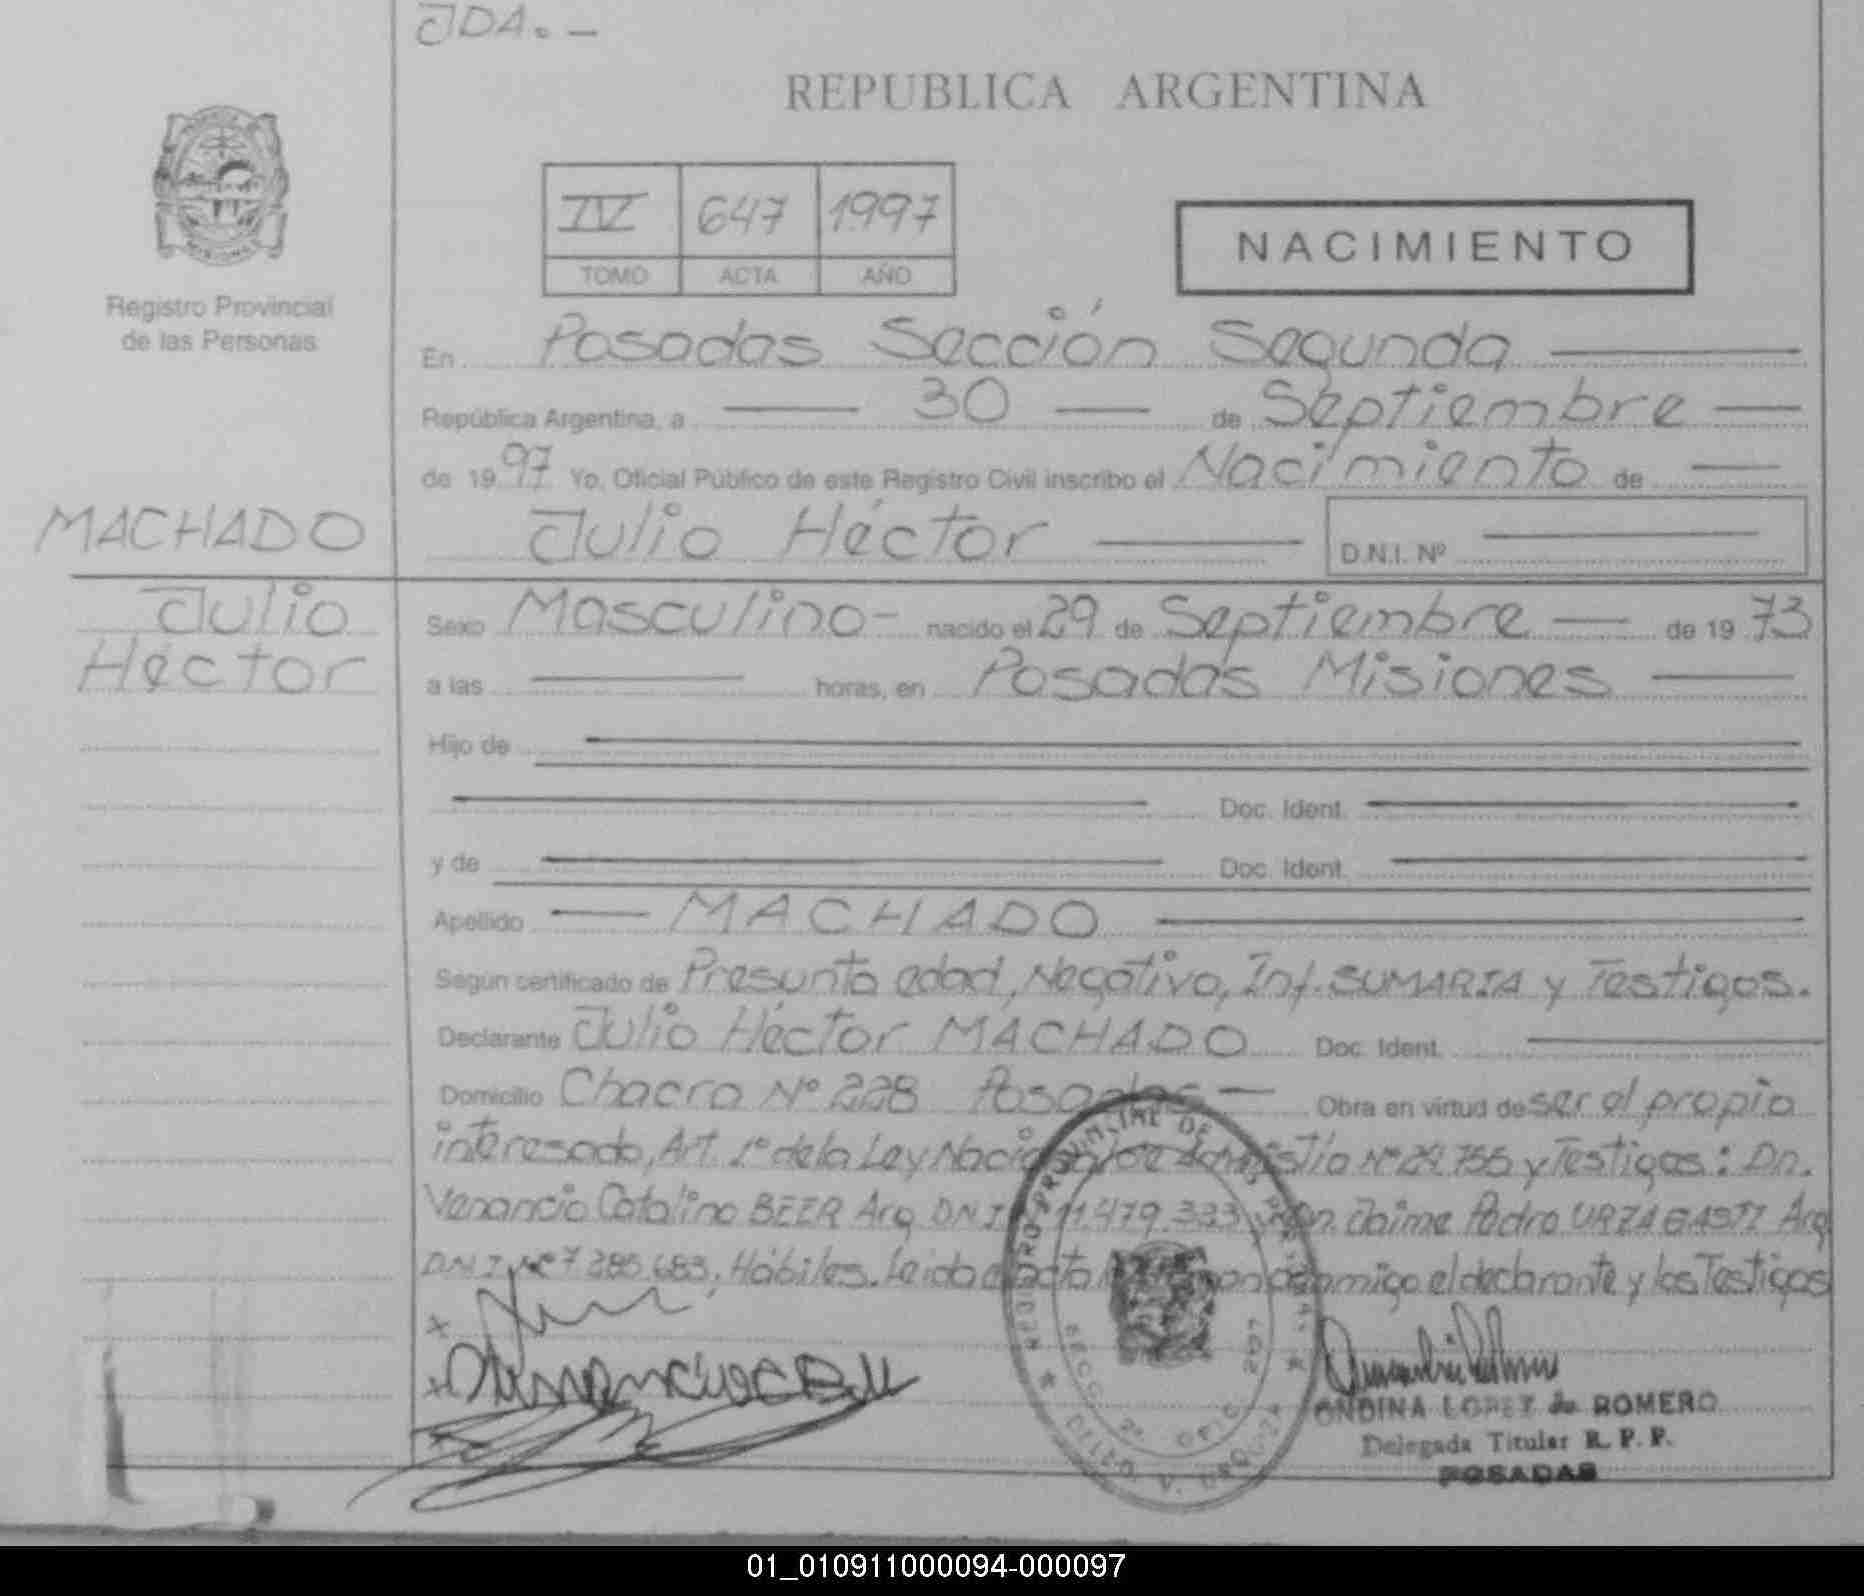 JDA. -
REPUBLICA ARGENTINA
IV 647 1997
TOMO ACTA AÑO
NACIMIENTO
Registro Provincial
de las Personas
En Posadas Sección Segunda
República Argentina, a 30 de Septiembre
de 19 97 Yo, Oficial Público de este Registro Civil inscribo el Nacimiento de
MACHADO
Julio Héctor D.N.I. Nº
Julio
Héctor
Sexo Masculino - nacido el 29 de Septiembre de 19 73
a las horas, en Posadas Misiones
Hijo de
Doc. Ident.
y de Doc. Ident.
Apellido MACHADO
Según certificado de Presunta edad, Negativo, Inf. SUMARIA y Testigos.
Declarante Julio Héctor MACHADO Doc. Ident.
Domicilio Chacra Nº 228 Posadas - Obra en virtud de ser el propio
interesado, Art. 1º de la Ley Nacional de Amnistía Nº 24.755 y Testigos: Dn.
Venancio Catalino BEER Arg. D N I 11.479.333 y Dn. Jaime Pedro Arg
D N I Nº 7 285.683, Hábiles. Leida el acta conmigo el declarante y los Testigos
REGISTRO PROVINCIAL DE LAS PERSONAS
SECC. 2ª
ONDINA LOPEZ de ROMERO
Delegada Titular R. P. P.
POSADAS
01_010911000094-000097